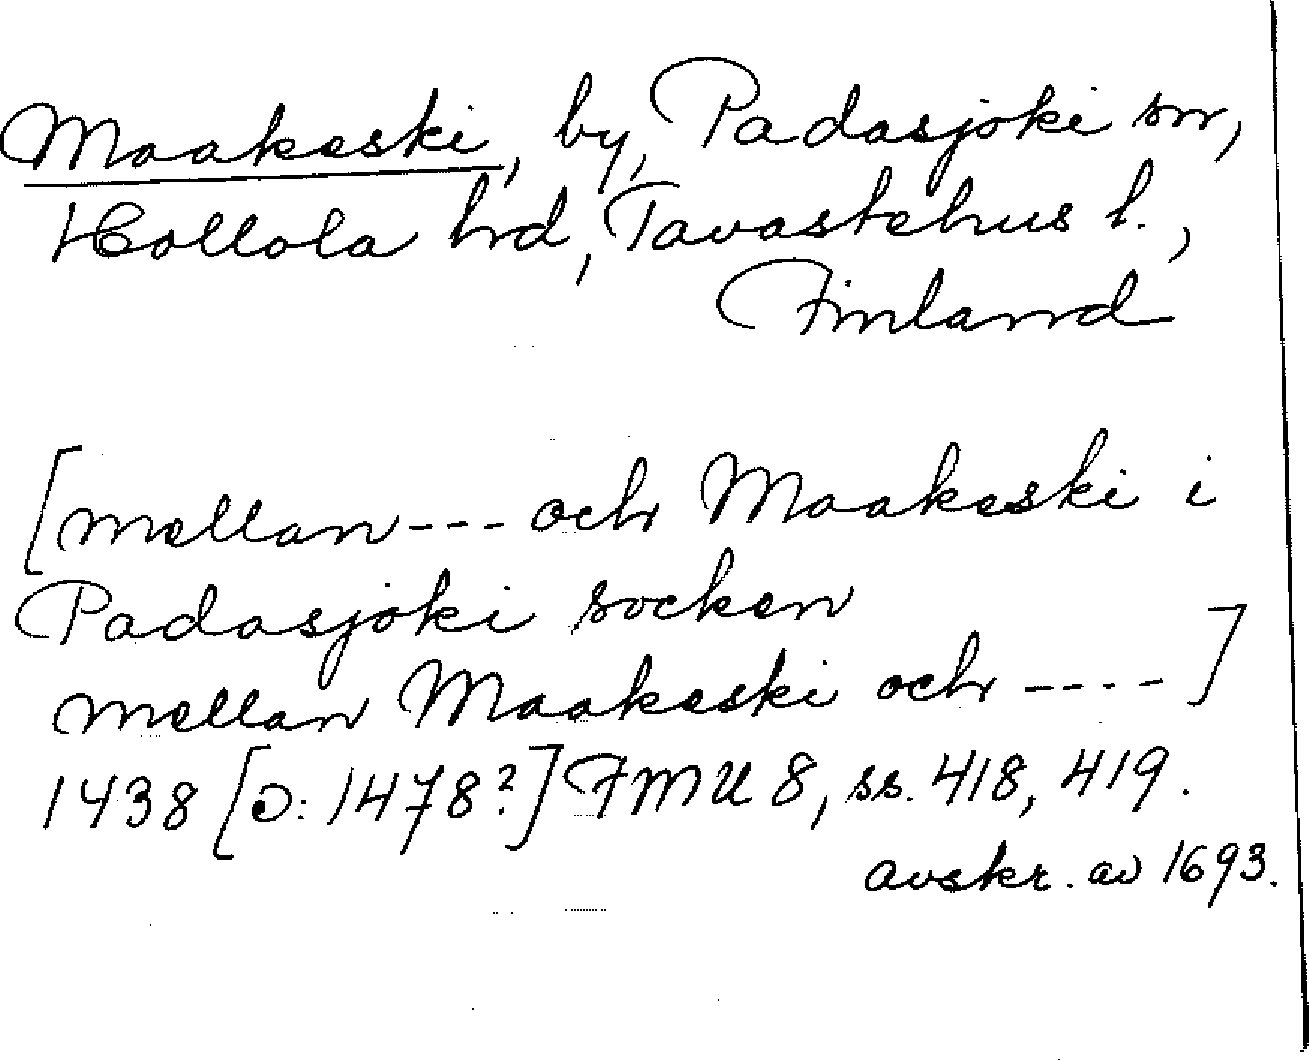 Maakeski, by, Padasjoki sn,
Hollola hrd, Tavastehus l.,
Finland
[mellan --- och Maakeski i
Padasjoki socken
mellan Maakeski och ----]
1438 [ɔ: 1478?] FMU 8, ss. 418, 419.
avskr. av 1693.